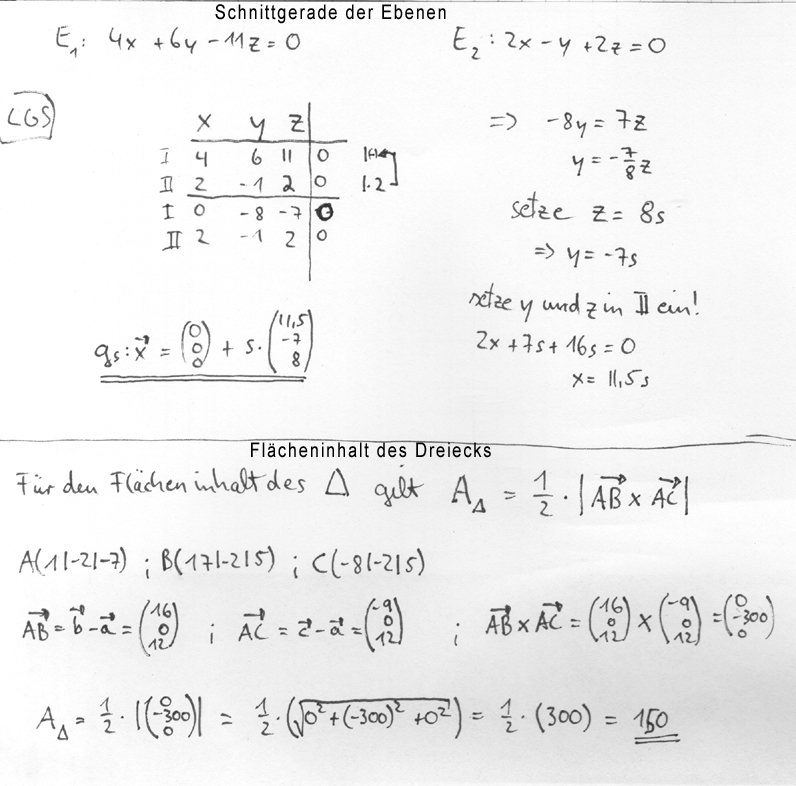 Schnittgerade der Ebenen
E₁: 4x + 6y - 11z = 0    E₂: 2x - y + 2z = 0
LGS
x y z
I 4 6 11 | 0
II 2 -1 2 | 0 |·2
I 0 -8 -7 | 0
II 2 -1 2 | 0
gₛ: x⃗ = (0 0 0) + s · (11,5 -7 8)
=> -8y = 7z
y = -7/8 z
setze z = 8s
=> y = -7s
setze y und z in II ein!
2x + 7s + 16s = 0
x = 11,5s
Flächeninhalt des Dreiecks
Für den Flächeninhalt des Δ gilt A_Δ = 1/2 · |AB⃗ x AC⃗|
A(1|-2|-7) ; B(17|-2|5) ; C(-8|-2|5)
AB⃗ = b⃗ - a⃗ = (16 0 12) ; AC⃗ = c⃗ - a⃗ = (-9 0 12) ; AB⃗ x AC⃗ = (16 0 12) x (-9 0 12) = (0 -300 0)
A_Δ = 1/2 · |(0 -300 0)| = 1/2 · (√(0² + (-300)² + 0²)) = 1/2 · (300) = 150